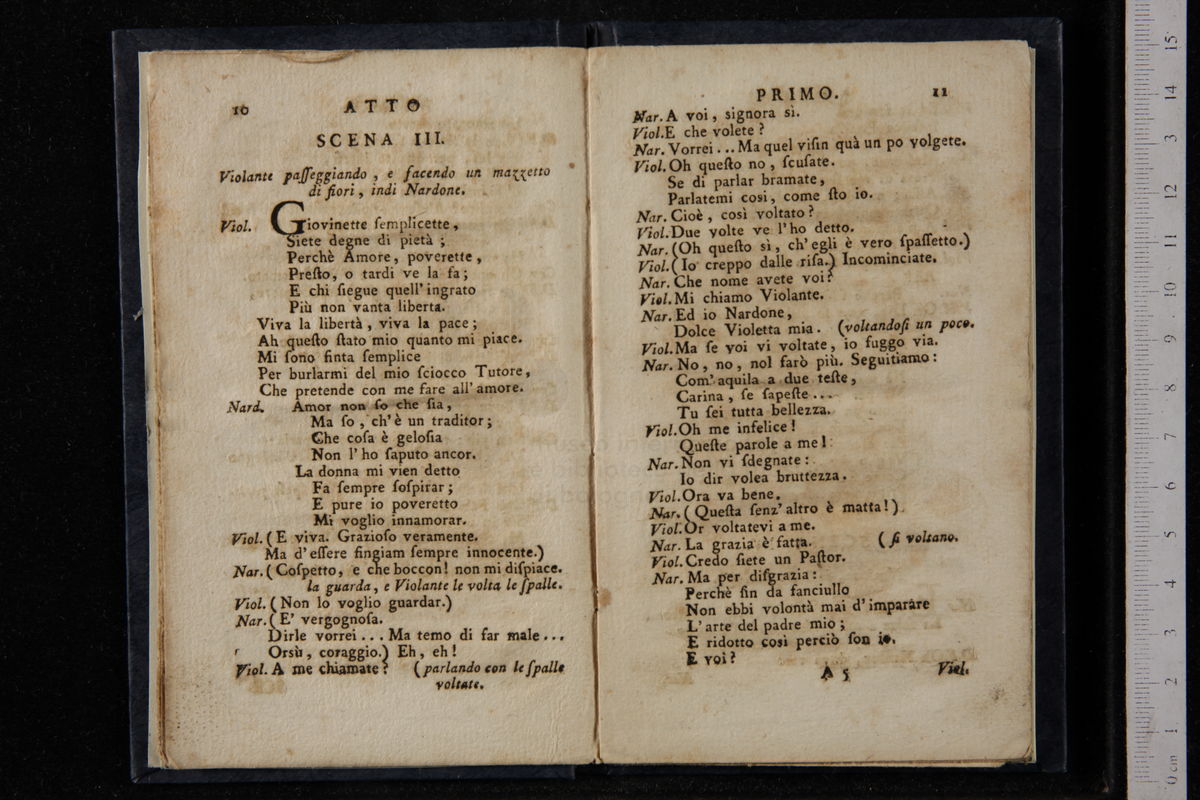 10 ATTO
SCENA III.
Violante paſſeggiando, e facendo un mazzetto
di fiori, indi Nardone.
Viol. Giovinette ſemplicette,
Siete degne di pietà;
Perchè Amore, poverette,
Preſto, o tardi ve la fa;
E chi ſiegue quell'ingrato
Più non vanta liberta.
Viva la libertà, viva la pace;
Ah queſto ſtato mio quanto mi piace.
Mi ſono finta ſemplice
Per burlarmi del mio ſciocco Tutore,
Che pretende con me fare all'amore.
Nard. Amor non ſo che ſia,
Ma ſo, ch'è un traditor;
Che coſa è geloſia
Non l'ho ſaputo ancor.
La donna mi vien detto
Fa ſempre ſoſpirar;
E pure io poveretto
Mi voglio innamorar.
Viol. (E viva. Grazioſo veramente.
Ma d'eſſere fingiam ſempre innocente.)
Nar. (Coſpetto, e che boccon! non mi diſpiace.
la guarda, e Violante le volta le ſpalle.
Viol. (Non lo voglio guardar.)
Nar. (E' vergognoſa.
Dirle vorrei... Ma temo di far male...
Orsù, coraggio.) Eh, eh!
Viol. A me chiamate? (parlando con le ſpalle
voltate.
PRIMO. 11
Nar. A voi, signora sì.
Viol. E che volete?
Nar. Vorrei... Ma quel viſin quà un po volgete.
Viol. Oh queſto no, ſcuſate.
Se di parlar bramate,
Parlatemi cosi, come ſto io.
Nar. Cioè, così voltato?
Viol. Due volte ve l'ho detto.
Nar. (Oh queſto sì, ch'egli è vero ſpaſſetto.)
Viol. (Io creppo dalle riſa.) Incominciate.
Nar. Che nome avete voi?
Viol. Mi chiamo Violante.
Nar. Ed io Nardone,
Dolce Violetta mia. (voltandoſi un poco.
Viol. Ma ſe voi vi voltate, io fuggo via.
Nar. No, no, nol farò più. Seguitiamo:
Com'aquila a due teſte,
Carina, ſe ſapeſte...
Tu ſei tutta bellezza.
Viol. Oh me infelice!
Queſte parole a me!
Nar. Non vi ſdegnate:
Io dir volea bruttezza.
Viol. Ora va bene.
Nar. (Queſta ſenz'altro è matta!)
Viol. Or voltatevi a me.
Nar. La grazia è fatta. (ſi voltano.
Viol. Credo ſiete un Paſtor.
Nar. Ma per diſgrazia:
Perchè fin da fanciullo
Non ebbi volontà mai d'imparare
L'arte del padre mio;
E ridotto così perciò ſon io.
E voi?
A 5 Viol.
15
14
13
12
11
10
9
8
7
6
5
4
3
2
1
0 cm